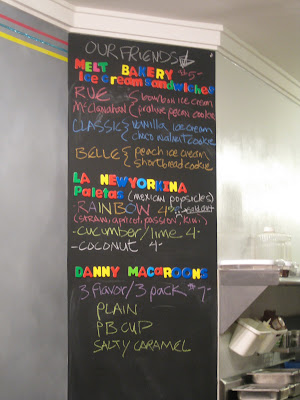 OUR FRIENDS
MELT BAKERY $5-
Ice cream sandwiches
RUE { bourbon ice cream
McClanahan { praline pecan cookie
CLASSIC { vanilla ice cream
choco walnut cookie
BELLE { peach ice cream
shortbread cookie
LA NEWYORKINA
Paletas (mexican popsicles)
-RAINBOW 4-
(STRAW, apricot, passion, kiwi)
-cucumber/lime 4-
-COCONUT 4-
DANNY MACAROONS
3 flavor/3 pack $7-
PLAIN
PB CUP
SALTY CARAMEL